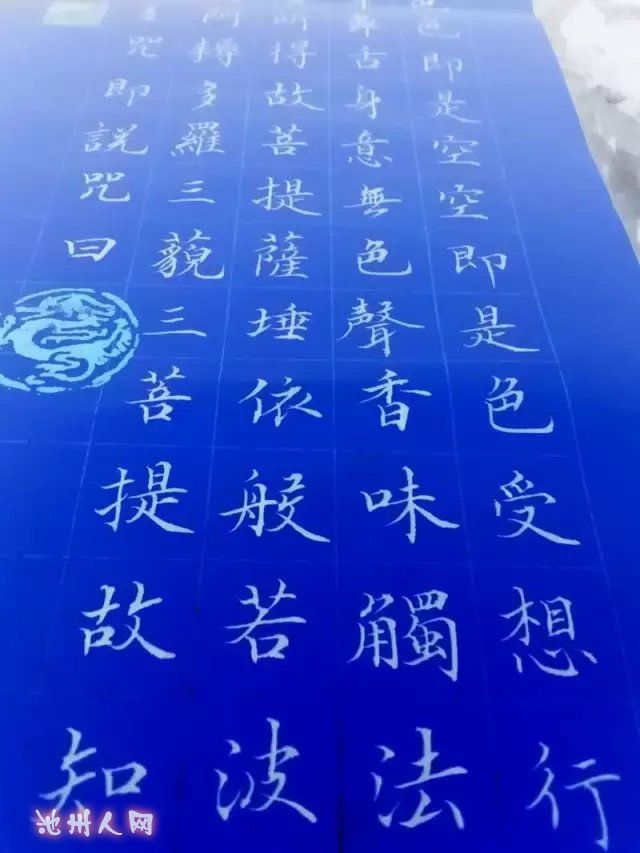 色即是空空即是色受想行
舌身意無色聲香味觸法
所得故菩提薩埵依般若波
耨多羅三藐三菩提故知
咒即說咒曰
池州人网